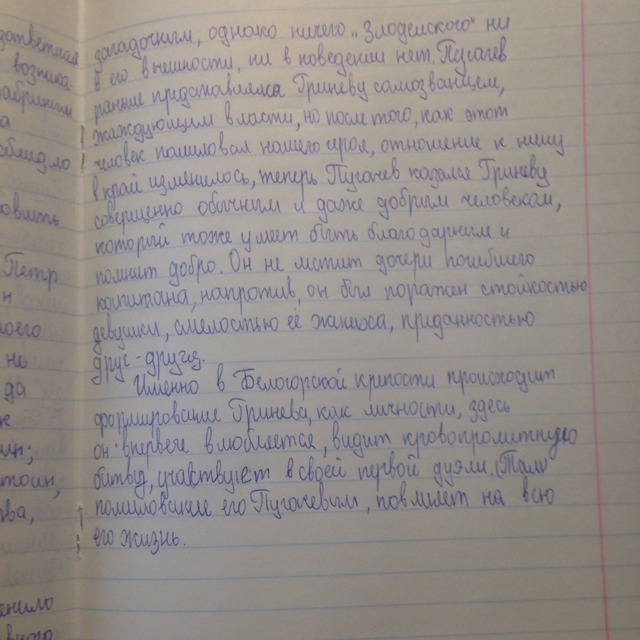 загадочным, однако ничего „Злодейского" ни
в его внешности, ни в поведении нет. Пугачёв
раньше представлялся Гриневу самозванцем,
жаждующим власти, но после того, как этот
человек помиловал нашего героя, отношение к нему
в край изменилось, теперь Пугачев казался Гриневу
совершенно обычным и даже добрым человеком,
который тоже умеет быть благодарным и
помнит добро. Он не мстит дочери погибшего
капитана, напротив, он был поражен стойкостью
девушки, смелостью её жениха, приданностью
друг-другу.
Именно в Белогорской крепости происходит
формирование Гринева, как личности, здесь
он впервые влюбляется, видит кровопролитную
битву, участвует в своей первой дуэли.
помилование его Пугачевым, повлияет на всю
его жизнь.
возника
а
Петр
н
моего
не
да
к